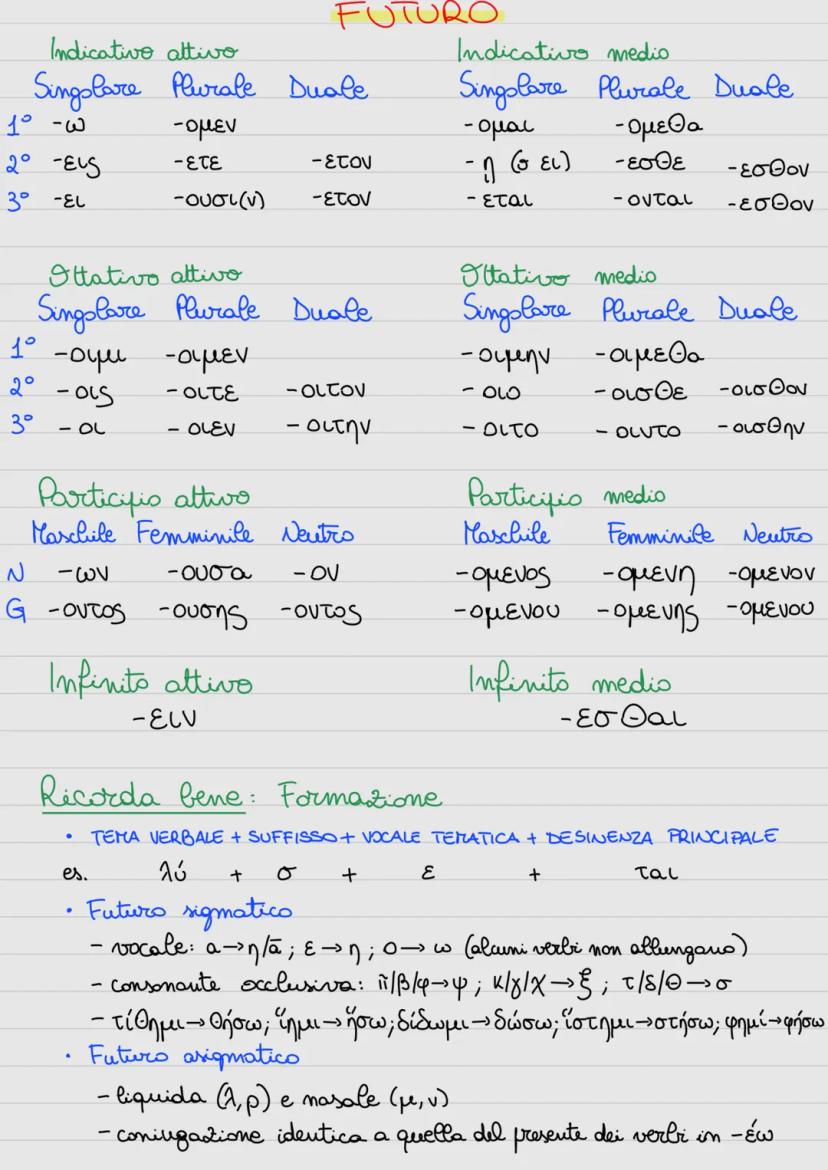 FUTURO
Indicativo attivo Indicativo medio
Singolare Plurale Duale Singolare Plurale Duale
1° -ω -ομεν -ομαι -ομεθα
2° -εις -ετε -ετον -ῃ (o ει) -εσθε -εσθον
3° -ει -ουσι(ν) -ετον -εται -ονται -εσθον
Ottativo attivo Ottativo medio
Singolare Plurale Duale Singolare Plurale Duale
1° -οιμι -οιμεν -οιμην -οιμεθα
2° -οις -οιτε -οιτον -οιο -οισθε -οισθον
3° -οι -οιεν -οιτην -οιτο -οιντο -οισθην
Participio attivo Participio medio
Maschile Femminile Neutro Maschile Femminile Neutro
N -ων -ουσα -ον -ομενος -ομενη -ομενον
G -οντος -ουσης -οντος -ομενου -ομενης -ομενου
Infinito attivo Infinito medio
-ειν -εσθαι
Ricorda bene: Formazione
• TEMA VERBALE + SUFFISSO + VOCALE TEMATICA + DESINENZA PRINCIPALE
es. λύ + σ + ε + ται
• Futuro sigmatico
- vocale: α→η/ᾱ; ε→η; ο→ω (alcuni verbi non allungano)
- consonante occlusiva: π/β/φ→ψ; κ/γ/χ→ξ; τ/δ/θ→σ
- τίθημι→θήσω; ἵημι→ἥσω; δίδωμι→δώσω; ἵστημι→στήσω; φημί→φήσω
• Futuro asigmatico
- liquida (λ,ρ) e nasale (μ,ν)
- coniugazione identica a quella del presente dei verbi in -έω